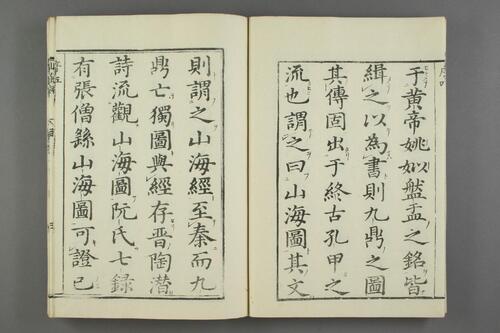 于黄帝姚姒盤盂之銘皆
緝之以為書則九鼎之圖
其傳固出于終古孔甲之
流也謂之曰山海圖其文
則謂之山海經至秦而九
鼎亡獨圖與經存晉陶潛
詩流觀山海圖阮氏七錄
有張僧繇山海圖可證已